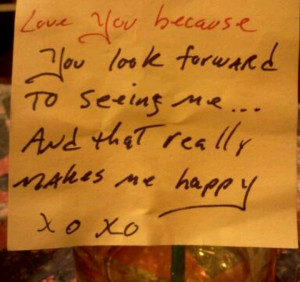 Love You because
You look forward
To seeing me...
And that really
makes me happy
xoxo